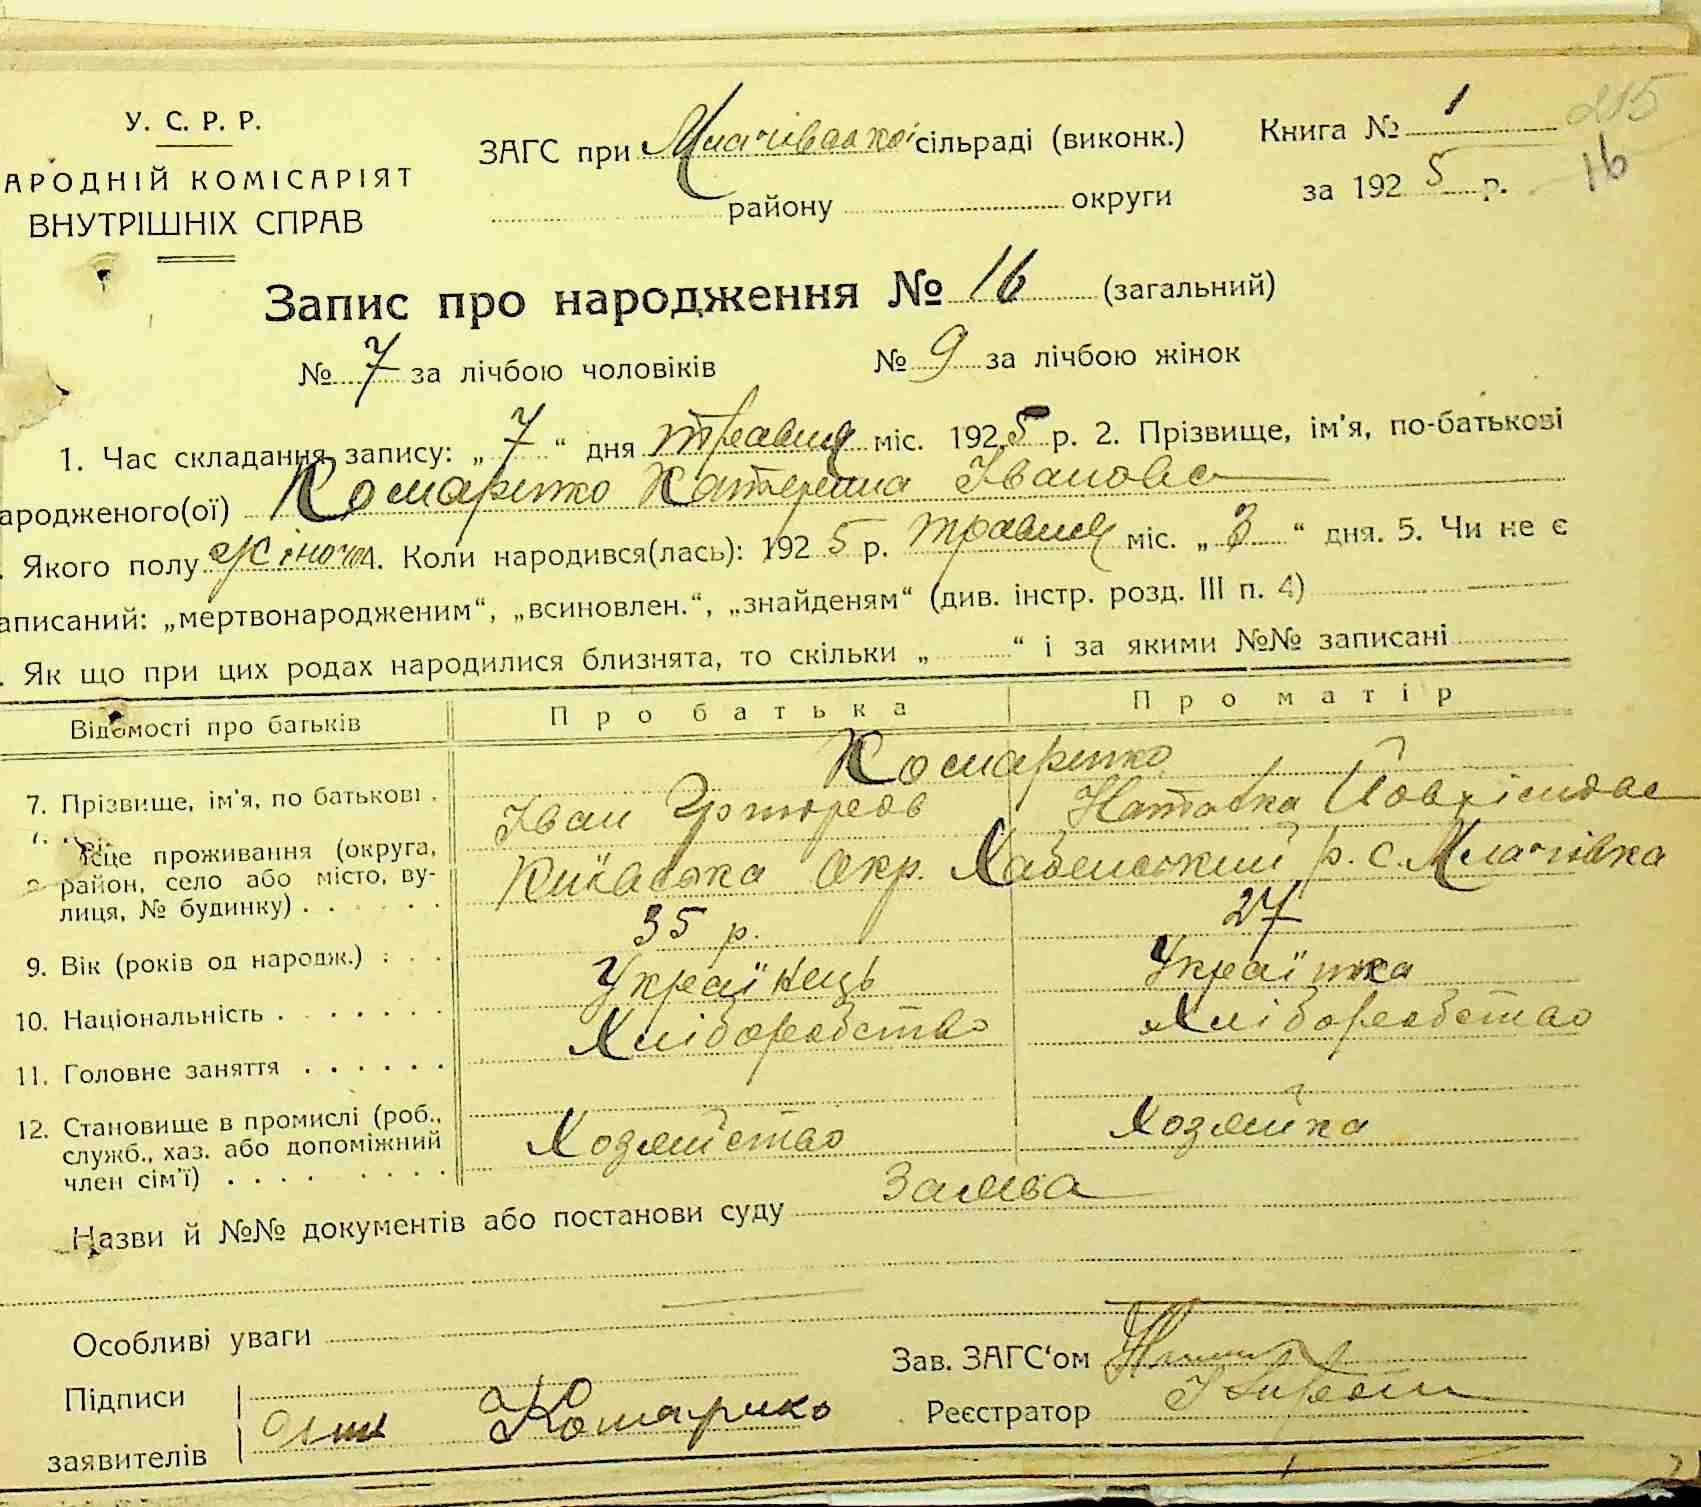 У. С. Р. Р.
АРОДНІЙ КОМІСАРІЯТ
ВНУТРІШНІХ СПРАВ
ЗАГС при сільраді (виконк.)
району округи
Книга № 1
215
за 1925 р.
16
Запис про народження № 16 (загальний)
№ 7 за лічбою чоловіків № 9 за лічбою жінок
1. Час складання запису: „7“ дня травня міс. 1925 р. 2. Прізвище, ім'я, по-батькові
ародженого(ої) Комаренко Катерина Іванова
. Якого полу жіноч 4. Коли народився(лась): 1925 р. травня міс. „3“ дня. 5. Чи не є
аписаний: „мертвонародженим“, „всиновлен.“, „знайденям“ (див. інстр. розд. III п. 4)
. Як що при цих родах народилися близнята, то скільки „ “ і за якими №№ записані
Відомості про батьків Про батька Про матір
Комаренко
7. Прізвище, ім'я, по батькові . Іван
ісце проживання (округа, район, село або місто, вулиця, № будинку) . . . . . Київська Окр. Хабенський р. с. Млачівка
9. Вік (років од народж.) . . . 35 р. 27
10. Національність . . . . . . . Українець Українка
11. Головне заняття . . . . . . Хліборобство Хліборобство
12. Становище в промислі (роб., служб., хаз. або допоміжний член сім'ї) . . . . . . . . Хозяйство Хозяйка
Назви й №№ документів або постанови суду Заява
Особливі уваги
Зав. ЗАГС'ом
Підписи
заявителів
Реєстратор